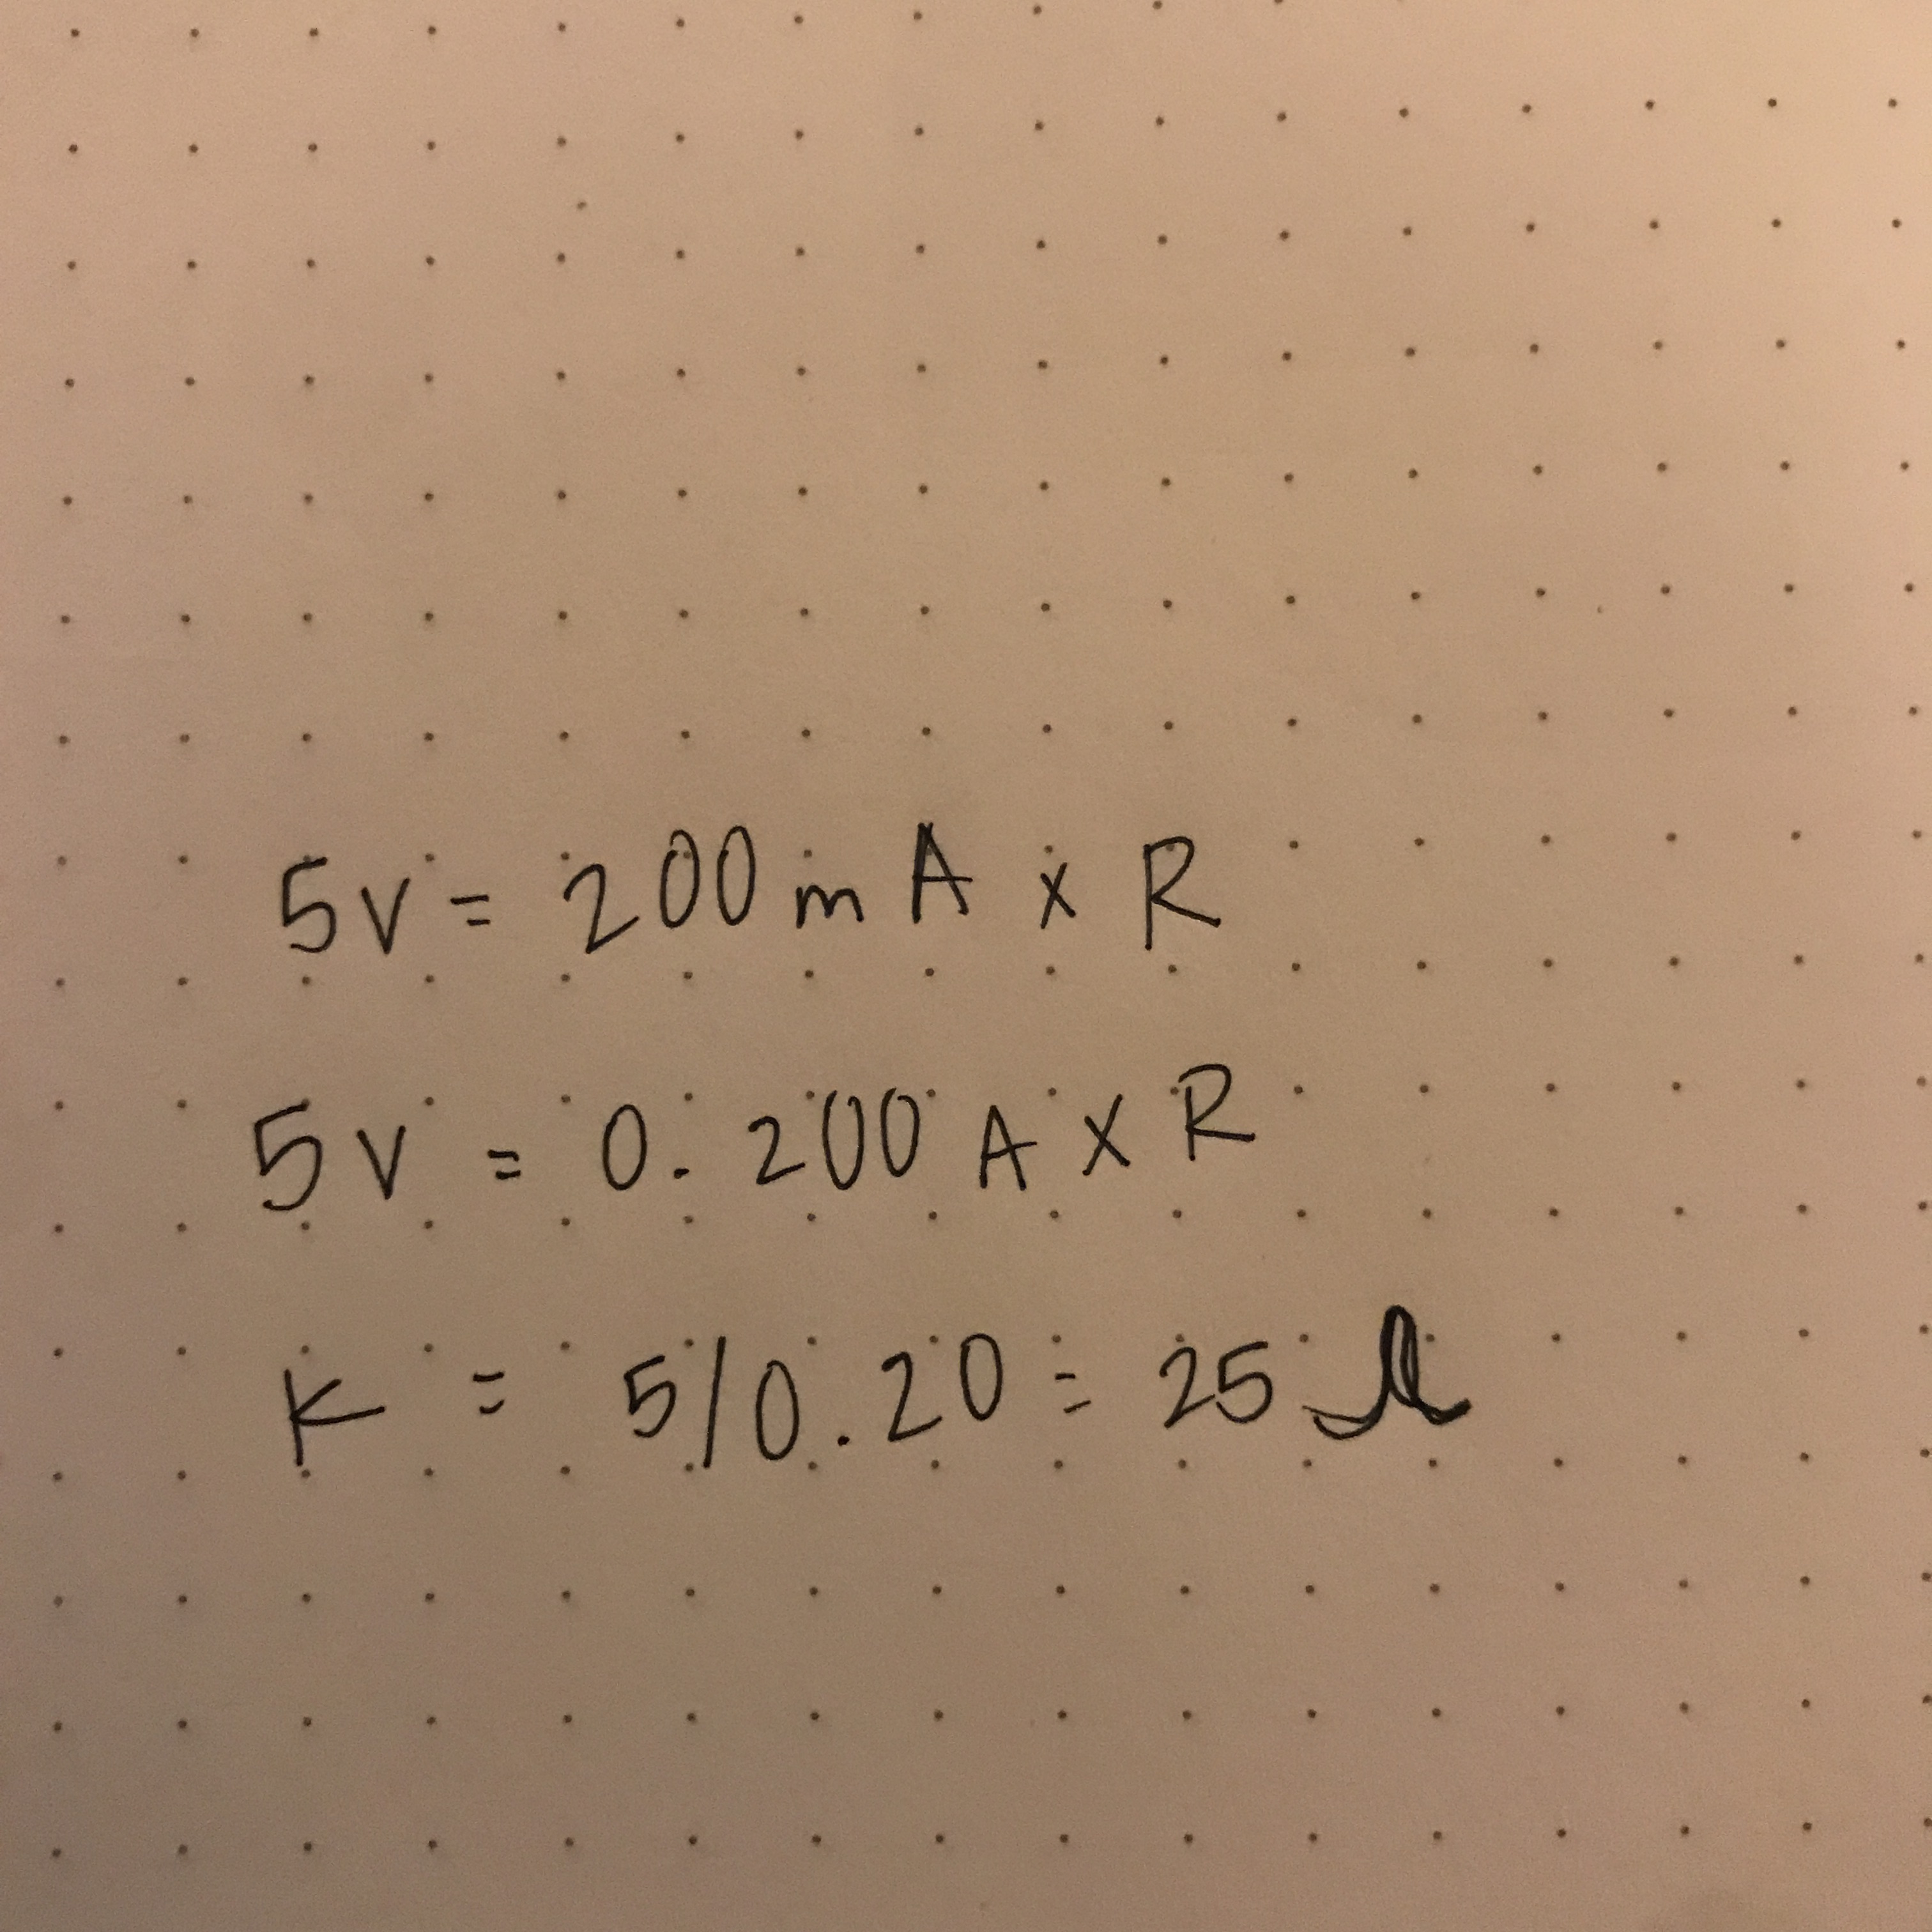 5V = 200mA x R
5V = 0.200 A x R
K = 5/0.20 = 25 Ω